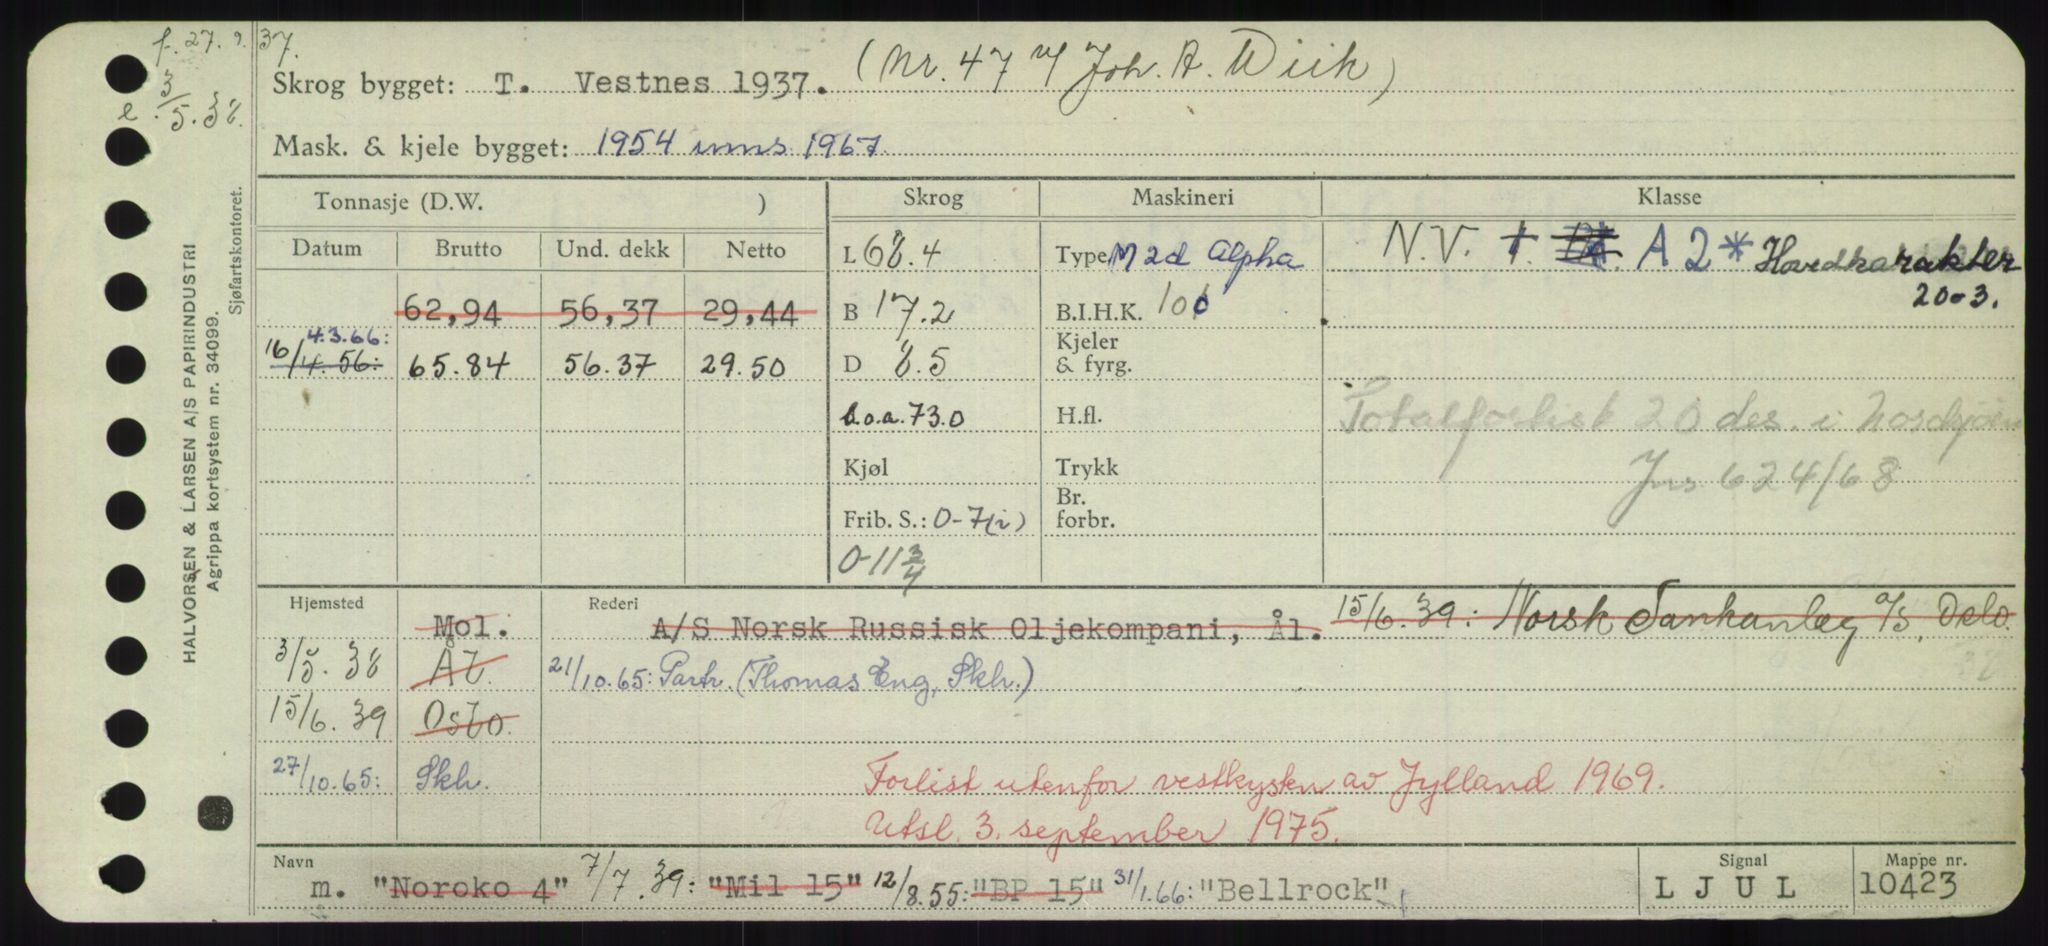 f. 27. 9. 37.
e. 3/5.38.
Skrog bygget: T. Vestnes 1937. (Nr. 47 v/ Joh. A. Wiik)
Mask. & kjele bygget: 1954 inns 1967.
HALVORSEN & LARSEN A/S PAPIRINDUSTRI
Agrippa kortsystem nr. 34099.
Sjøfartskontoret.
Tonnasje (D.W. ) Skrog Maskineri Klasse
Datum Brutto Und. dekk Netto
L 68.4 Type M 2d Alpha N.V. A 2* Havdkarakter
20-3.
62,94 56,37 29,44 B 17.2 B.I.H.K. 100
4.3.66:
16/4.56: 65.84 56.37 29.50 D 8.5 Kjeler & fyrg.
L.o.a. 73.0 H.fl. Totalforlist 20 des. i Nordsjøen
Kjøl Trykk Jns 624/68
Frib. S.: 0-7(i) Br. forbr.
0-11 3/4
Hjemsted Rederi
Mol. A/S Norsk Russisk Oljekompani, Ål. 15/6.39: Norsk Tankanleg a/s, Oslo.
3/5.38 Ål. 21/10.65: Partr. (Thomas Eng, Skh.)
15/6.39 Oslo.
27/10.65: Skh. Forlist utenfor vestkysten av Jylland 1969.
Utsl. 3. september 1975.
Navn Signal Mappe nr.
m. "Noroko 4" 7/7.39: "Mil 15" 12/8.55: "BP 15" 31/1.66: "Bellrock" L J U L 10423